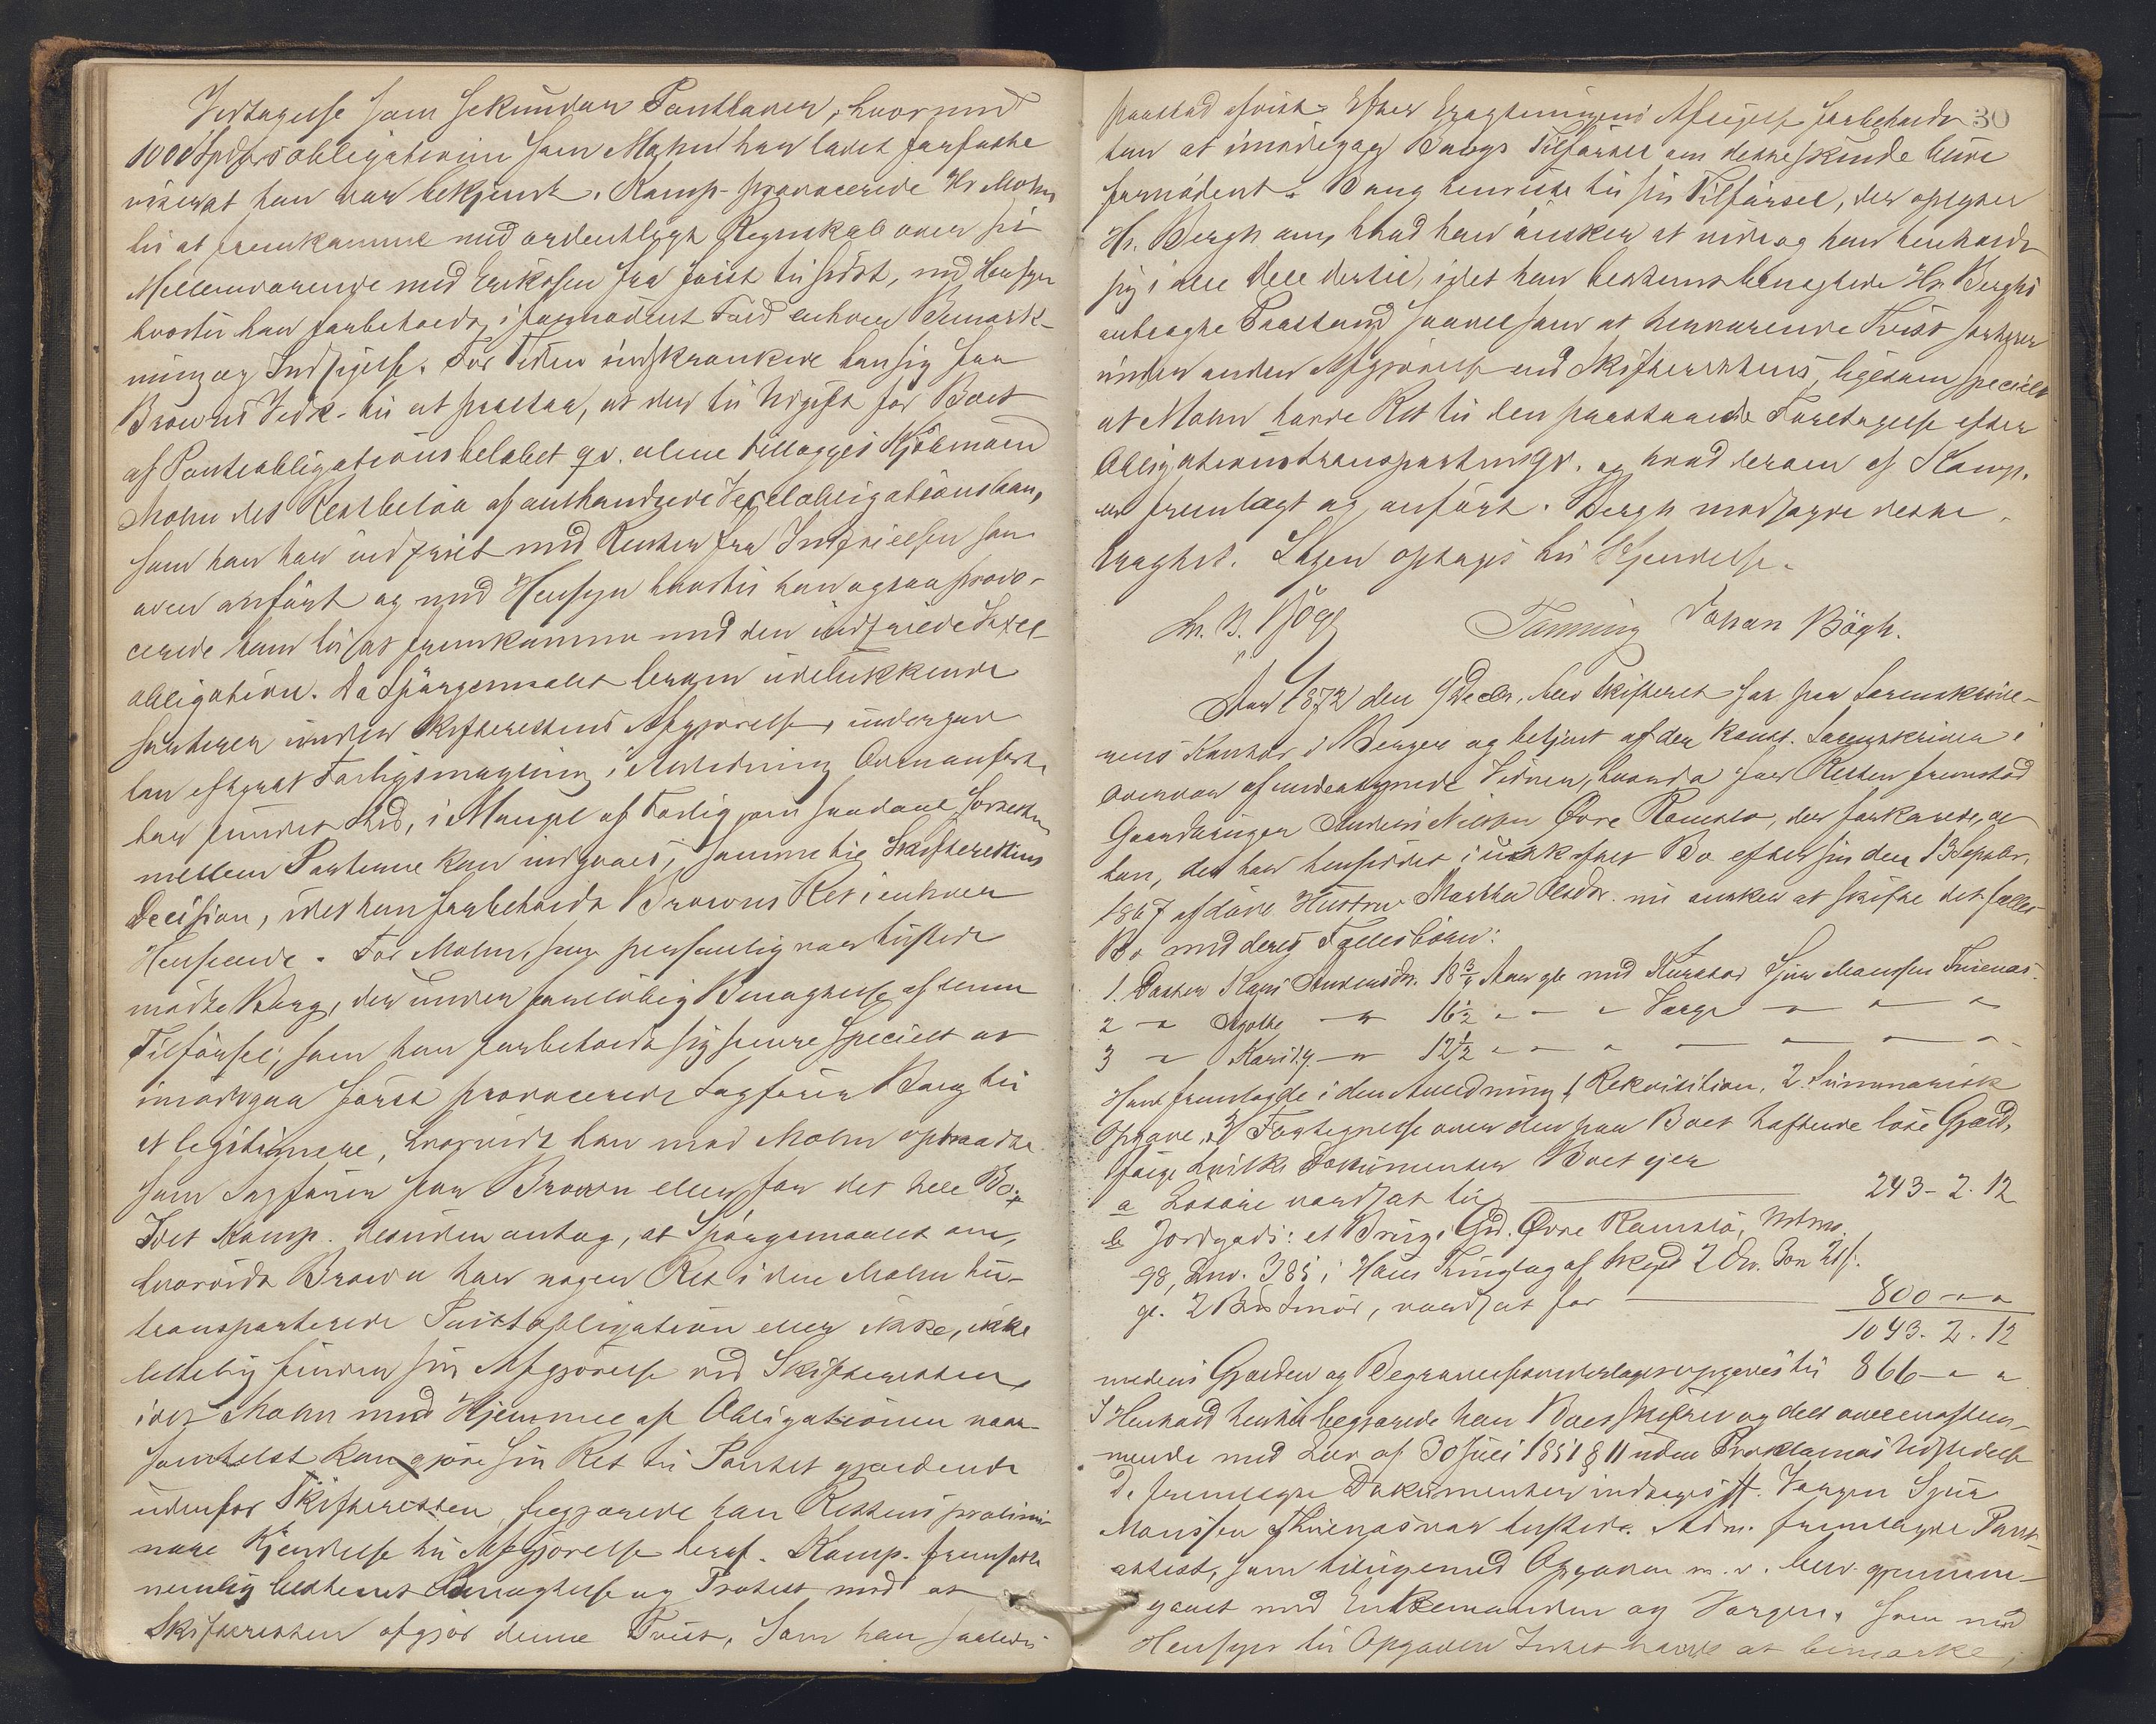 Vedtagelse som sekundær Panthaver, hvormed
1000 Spd. obligationen som Mohn har ladet forfatte
viser at han var bekjendt. Kamp. provocerede Hr Mohn
til at fremkomme med ordentligt Regnskab over sit
Mellemværende med Eriksen fra først til sidst, med Hensyn
hvortil han forbeholdt, i fornødent Fald enhver Bemærk-
ning og Indsigelse. For Tiden indskrænkede han sig for
Browns Vedk. til at paastaa, at der til Udgift for Boet
af Pantobligationsbeløbet qv. alene tillægges Kjøbmand
Mohn det Restbeløb af
som han har indfriet med Renter fra Indfrielsen som
oven anført og med Hensyn hvortil han ogsaa provo-
cerede ham til at fremkomme med den indfriede
obligation. Da Spørgsmaalet herom udelukkende
sorterer under Skifterettens Afgjørelse, undergav
han efterat Forligsmægling i Anledning Ovenanførte
har fundet Sted, i Mangel af Forlig som saadant
mellem Parterne kan indgaaes, samme til Skifterettens
Decision, idet han forbeholdt Browns Ret i enhver
Henseende. For Mohn, som personlig var tilstede
mødte Bang, der under foreløbig Benægtelse af denne
Tilførsel, som han forbeholdt sig senere specielt at
imødegaa først provocerede Sagfører Bang til
at legitimere, hvorvidt han mod Mohn optraadte
som Sagfører for Brown eller for det hele Bo.
Idet Komp. desuden antog, at Spørgsmaalet om,
hvorvidt Brown har nogen Ret i den Mohn til-
transporterede Pantobligation eller ikke, ikke
lettelig finder sin Afgjørelse ved Skifteretten,
idet Mohn med Hjemmel af Obligationen naar-
somhelst kan gjøre sin Ret til Pantet gjældende
udenfor Skifteretten, begjærede han Rettens prælimi-
nære Kjendelse til Afgjørelse heraf. Komp. fremsatte
nemlig bestemt Benægtelse og Protest mod at
Skifteretten afgjør denne Tvist, som han saaledes
30
paastod afvist. Efter Eragtningens Afsigelse forbeholdt
han at imødegaa Bangs Tilførsel om dette skulde blive
fornødent. Bang henviste til sin Tilførsel, der oplyser
Hr. Bergh om, hvad han ønsker at vide og han henholdt
sig i alle Dele dertil, idet han bestemt benægtede Hr. Berghs
anbragte Paastand saavelsom at herværende Tvist sorterer
under anden Afgjørelse end Skifterettens, ligesom specielt
at Mohn havde Ret til den paastaaede Foretagelse efter
Obligationstransporten qv. og hvad derom af Komp.
er fremlagt og anført. Bergh modsagde dette
bragtes. Sagen optages til Kjendelse.
Tanning Johan Bøgh.
Aar 1872 den 9 Decbr. blev Skifteret sat paa Sorenskrive-
rens Kontor i Bergen og betjent af den konst. Sorenskriver i
Overvær af undertegnede Vidner, hvorda for Retten fremstod
Gaardbruger Anders Nilsen Øvre Ramslo, der forklarede, at
han, der har hensiddet i uskiftet Bo efter sin den 13 Septbr.
1867 afdøde Hustru Martha Olsdr. nu ønsker at skifte det fælles
Bo med deres Fællesbørn:
1. Datter Kari Andersdr. 18 3/4 Aar gl. med Kurator Sjur Monssen
2 " Agathe " 16 1/2 " " " Værge " " "
3 " Kari d.y. " 12 1/2 " " " " " "
Han fremlagde i den Anledning 1 Rekvisition, 2. Summarisk
Opgave, 3) Fortegnelse over den paa Boet hæftende løse Gjæld,
ifølge hvilke Dokumenter Boet ejer
a Løsøre værdsat til 243 - 2. 12
b Jordgods: et Brug i Grd. Øvre Ramslo, Mtrno.
98, Lno. 385 i Haus Thinglag af Skyld 2 Ort. 3on 2ds f.
gl. 2 Bds Smør, værdsat for 800 " "
1043. 2. 12
medens Gjælden og Begravelsesomkostninger opgaves til 866 " "
I Henhold hertil begjærede han Boet skiftet og delt overensstem-
mende med Lov af 30 Juli 1851 § 11 uden Proklamas Udstedelse
De fremlagte Dokumenter indtages ff. Værgen Sjur
Monssen var tilstede. Adm. fremlagde Pant-
attest, som tilligemed Opgaven m. v. blev gjennem-
gaaet med Enkemanden og Værgen, som med
Hensyn til Opgaven Intet havde at bemærke,